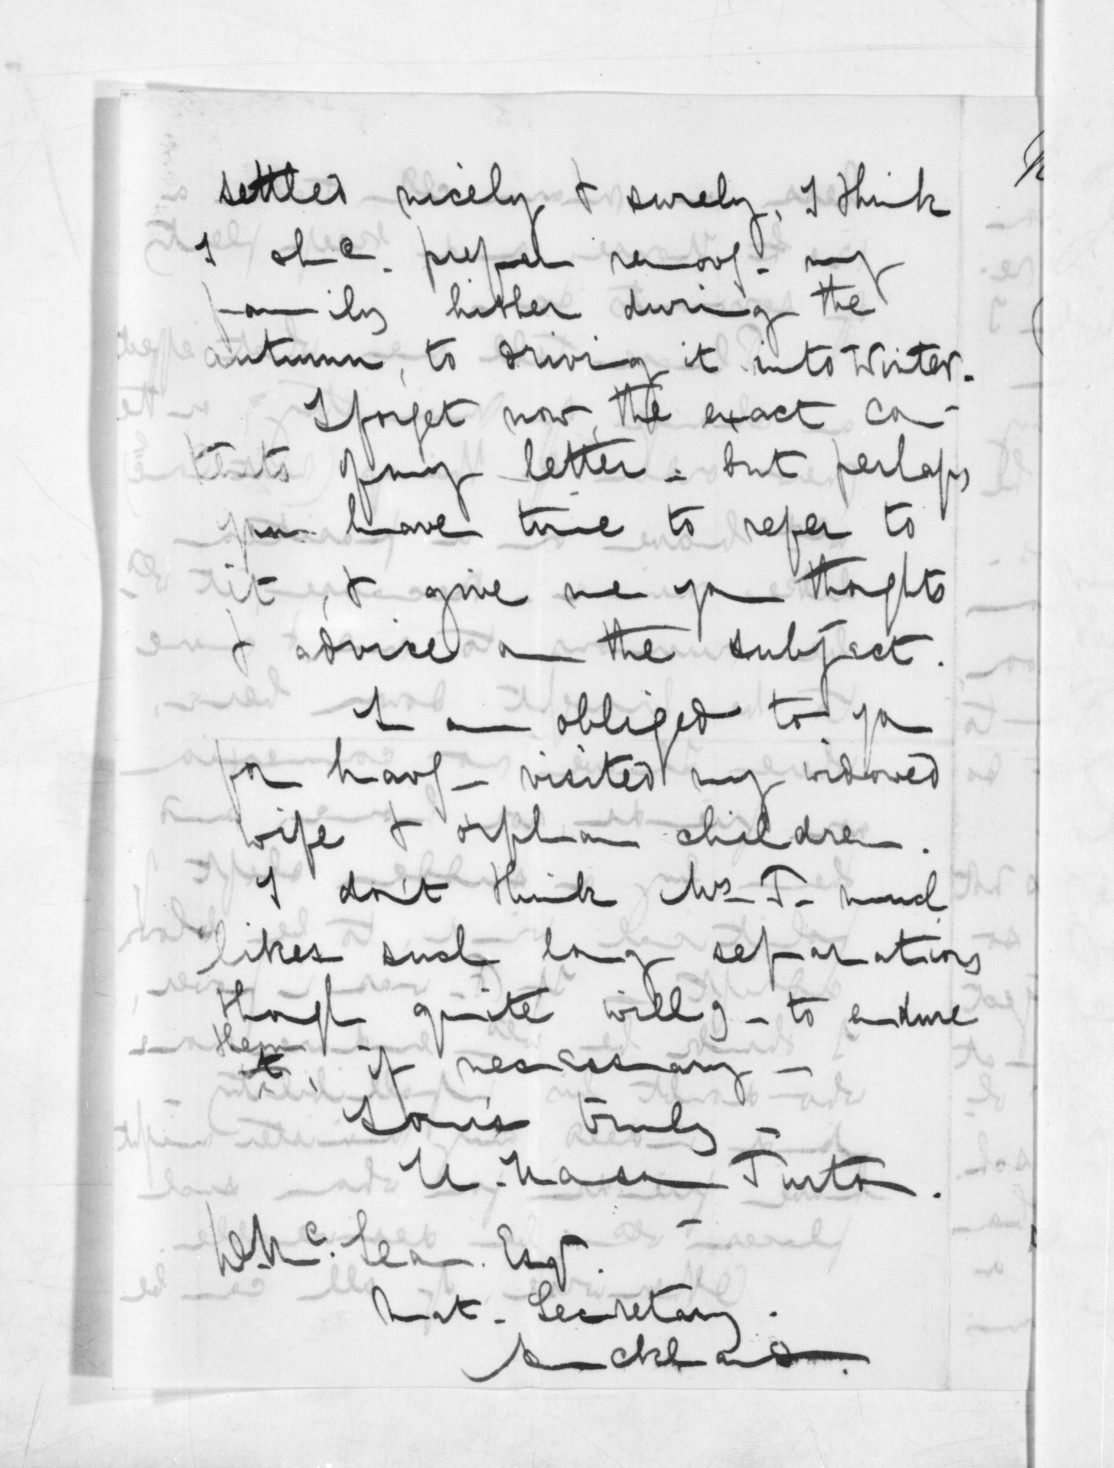 settled nicely & surely, I think
I shd. prefer removg - my
family hither during the
autumn, to driving it into Winter.
I forget now, the exact con-
tents of my letter - but perhaps
you have time to refer to
it, & give me your thoughts
& advice on the subject.
I am obliged to you
for havg - visited my widowed
wife & orphan children.
I don't think Mrs T- much
likes such long separations
though quite willg - to endure
them, if necessary -
Yours truly -
H. Hanson Turton.
D. McLean. Esqr.
Nat. Secretary.
Auckland.